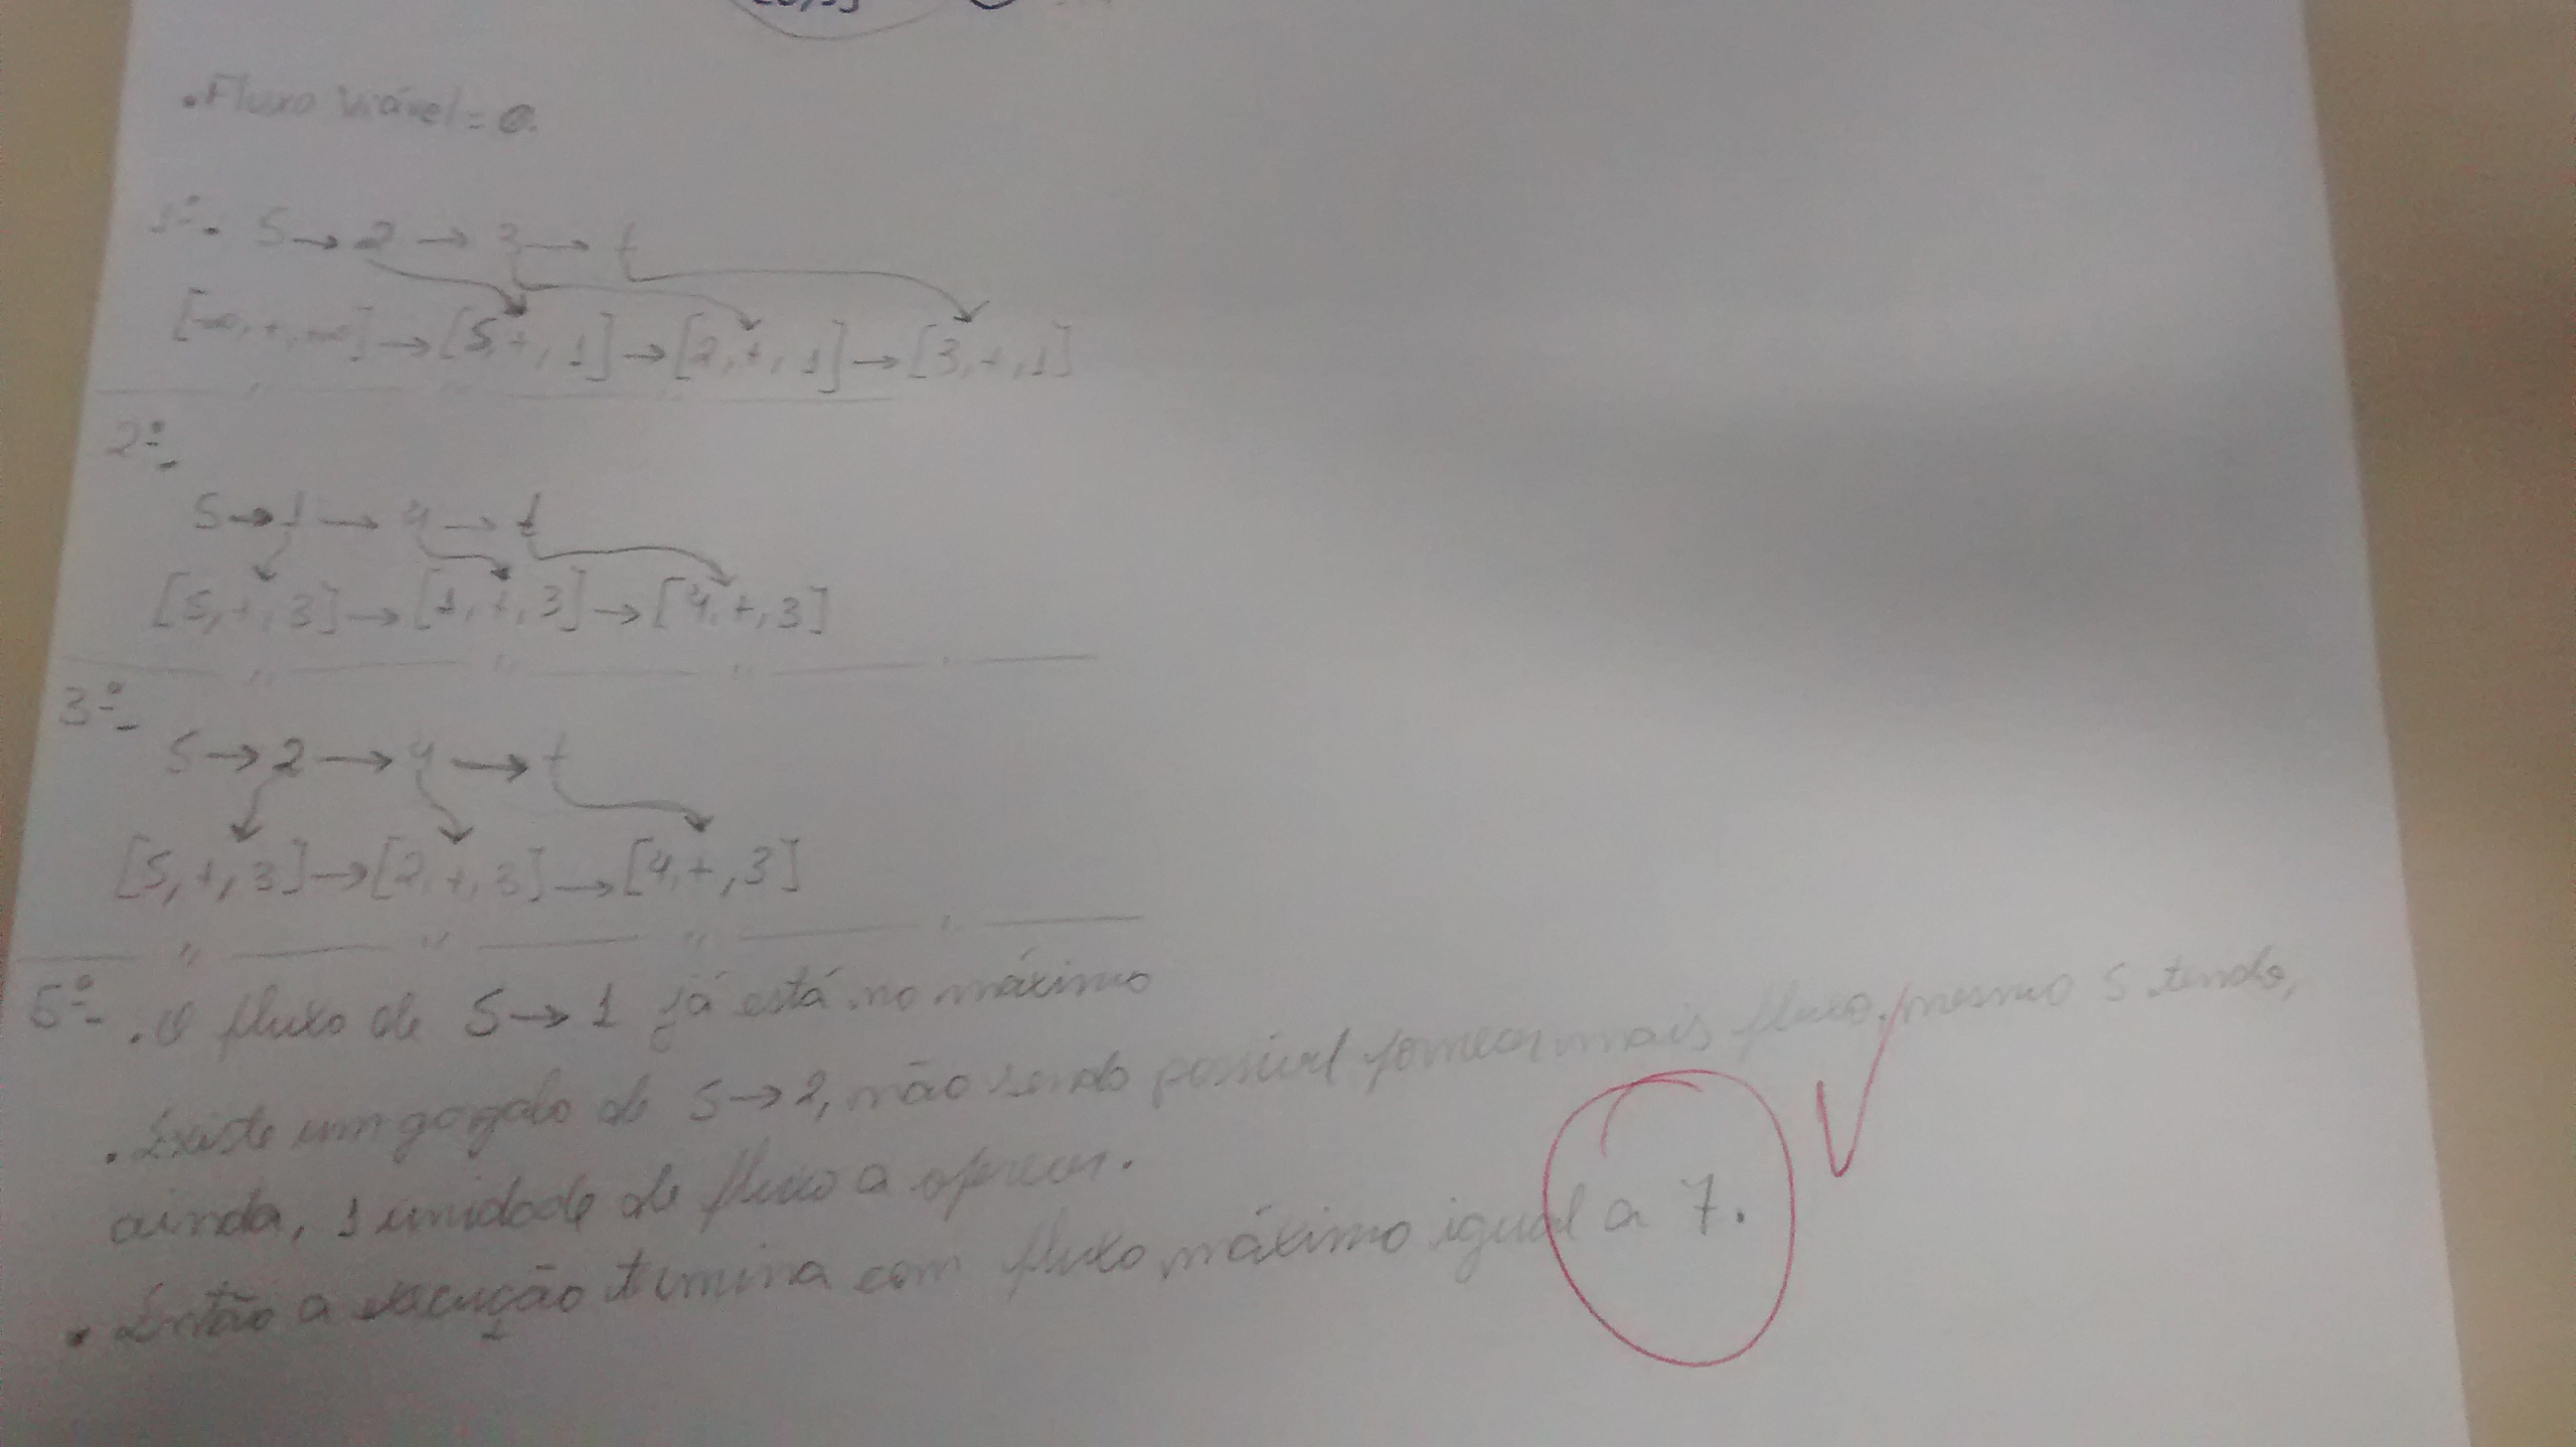 . Fluxo viável = 0.
1º. S → 2 → 3 → t
[-∞, +, ∞] → [S, +, 1] → [2, +, 1] → [3, +, 1]
2º-
S → 1 → 4 → t
[S, +, 3] → [1, +, 3] → [4, +, 3]
3º-
S → 2 → 4 → t
[S, +, 3] → [2, +, 3] → [4, +, 3]
5º- . O fluxo de S → 1 já está no máximo
. Existe um gargalo de S → 2, não sendo possível fornecer mais fluxo, mesmo S tendo,
ainda, 1 unidade de fluxo a oferecer.
. Então a execução termina com fluxo máximo igual a 7.